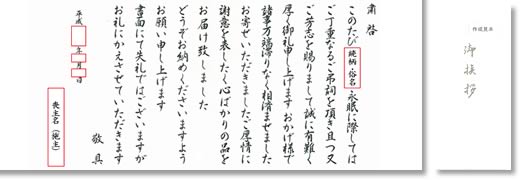 粛啓
このたび続柄・俗名永眠に際しては
ご丁重なるご弔詞を頂き且つ又
ご芳志を賜りまして誠に有難く
厚く御礼申し上げます おかげ様で
諸事万端滞りなく相済ませました
お寄せいただきましたご厚情に
謝意を表したく心ばかりの品を
お届け致しました
どうぞお納めくださいますよう
お願い申し上げます
書面にて失礼ではございますが
お礼にかえさせていただきます
敬具
平成 年 月 日
喪主名(施主)
御挨拶